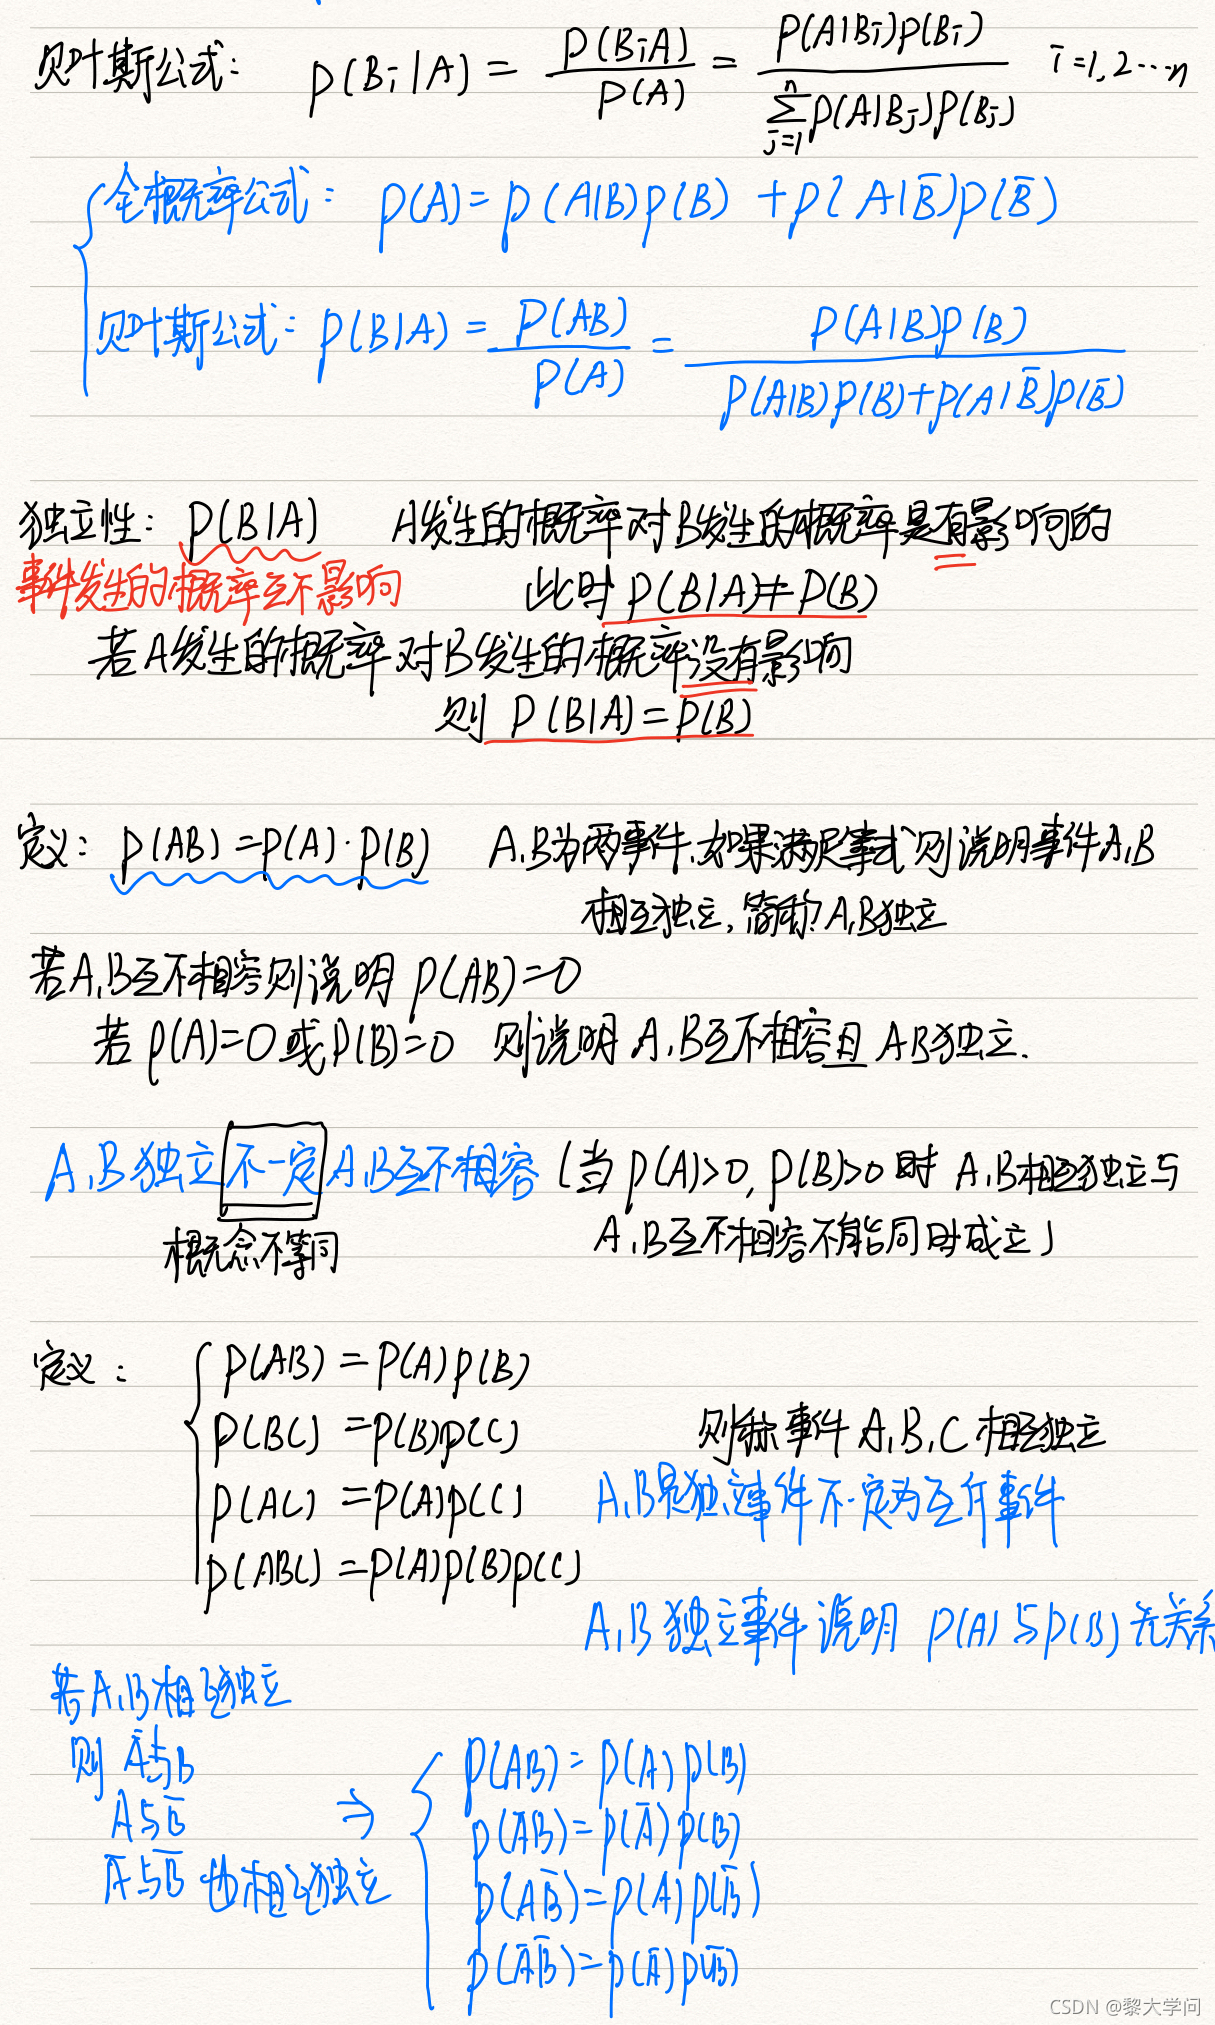 贝叶斯公式: P(Bi|A) = P(BiA)/P(A) = P(A|Bi)P(Bi)/∑(j=1→n)P(A|Bj)P(Bj) i=1,2…n
全概率公式: P(A)=P(A|B)P(B)+P(A|B̄)P(B̄)
贝叶斯公式: P(B|A)=P(AB)/P(A)=P(A|B)P(B)/P(A|B)P(B)+P(A|B̄)P(B̄)
独立性: P(B|A) A发生的概率对B发生的概率是有影响的
事件发生的概率互不影响 此时P(B|A)≠P(B)
若A发生的概率对B发生的概率没有影响
则 P(B|A)=P(B)
定义: P(AB)=P(A)·P(B) A,B为两事件,如果满足等式则说明事件A,B
相互独立,简称A,B独立
若A,B互不相容则说明P(AB)=0
若P(A)=0或P(B)=0 则说明A,B互不相容且AB独立.
A,B独立不一定A,B互不相容 (当P(A)>0,P(B)>0时 A,B相互独立与
概念不等同 A,B互不相容不能同时成立)
定义: P(AB)=P(A)P(B)
P(BC)=P(B)P(C) 则称事件A,B,C相互独立
P(AC)=P(A)P(C) A,B是独立事件不一定为互斥事件
P(ABC)=P(A)P(B)P(C)
A,B独立事件说明 P(A)与P(B)无关系
若A,B相互独立
则 Ā与B P(AB)=P(A)P(B)
A与B̄ ⇒ P(ĀB)=P(Ā)P(B)
Ā与B̄也相互独立 P(AB̄)=P(A)P(B̄)
P(ĀB̄)=P(Ā)P(B̄)
CSDN @黎大学问